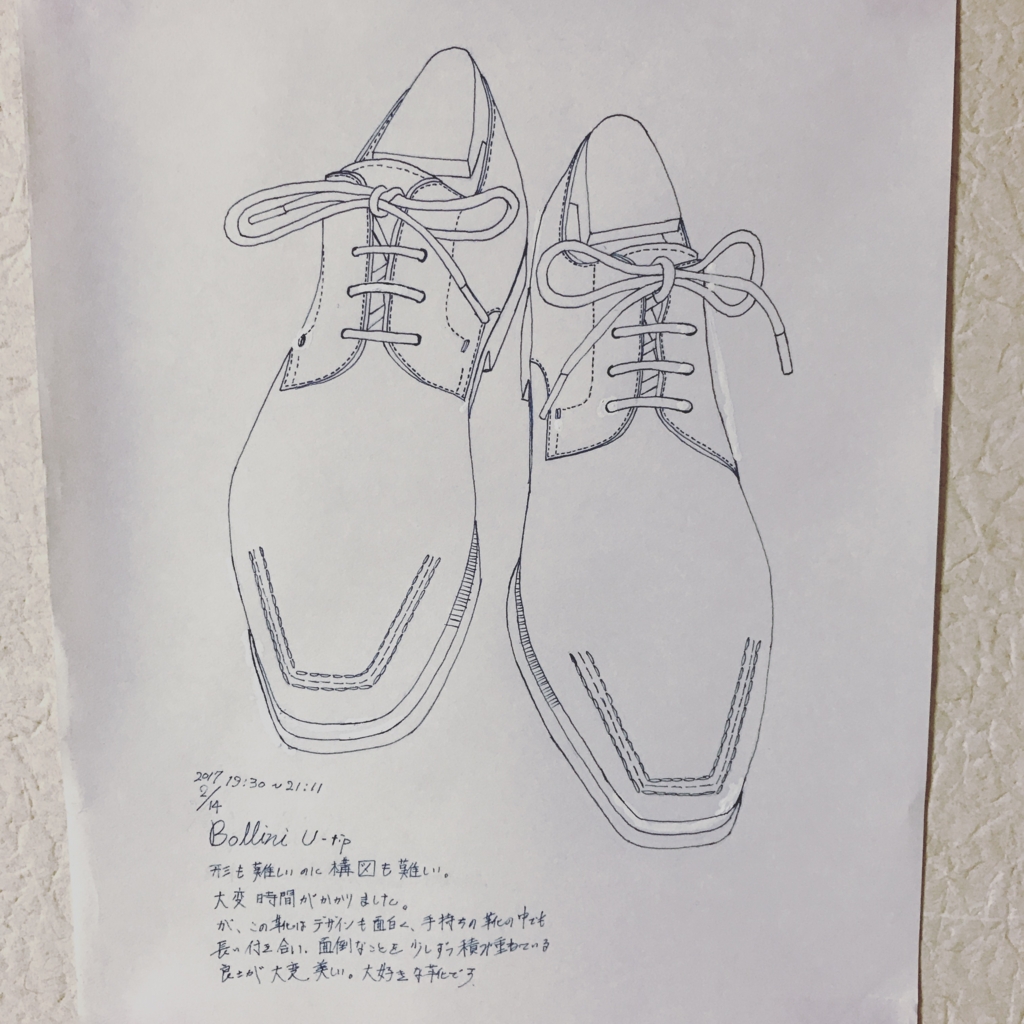 2017 19:30~21:11
2/14
Bollini U-tip
形も難しいのに構図も難しい。
大変時間がかかりました。
が、この靴はデザインも面白く、手持ちの靴の中でも
長い付き合い、面倒なことを少しずつ積み重ねている
良さが大変美しい。大好きな靴です